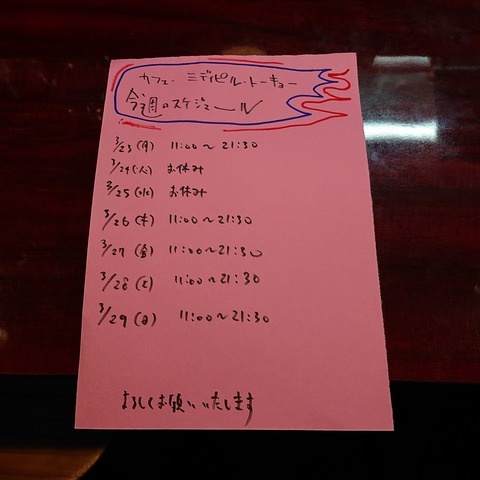 カフェ・ミディピル・トーキョー
今週のスケジュール
3/23(月) 11:00〜21:30
3/24(火) お休み
3/25(水) お休み
3/26(木) 11:00〜21:30
3/27(金) 11:00〜21:30
3/28(土) 11:00〜21:30
3/29(日) 11:00〜21:30
よろしくお願いいたします